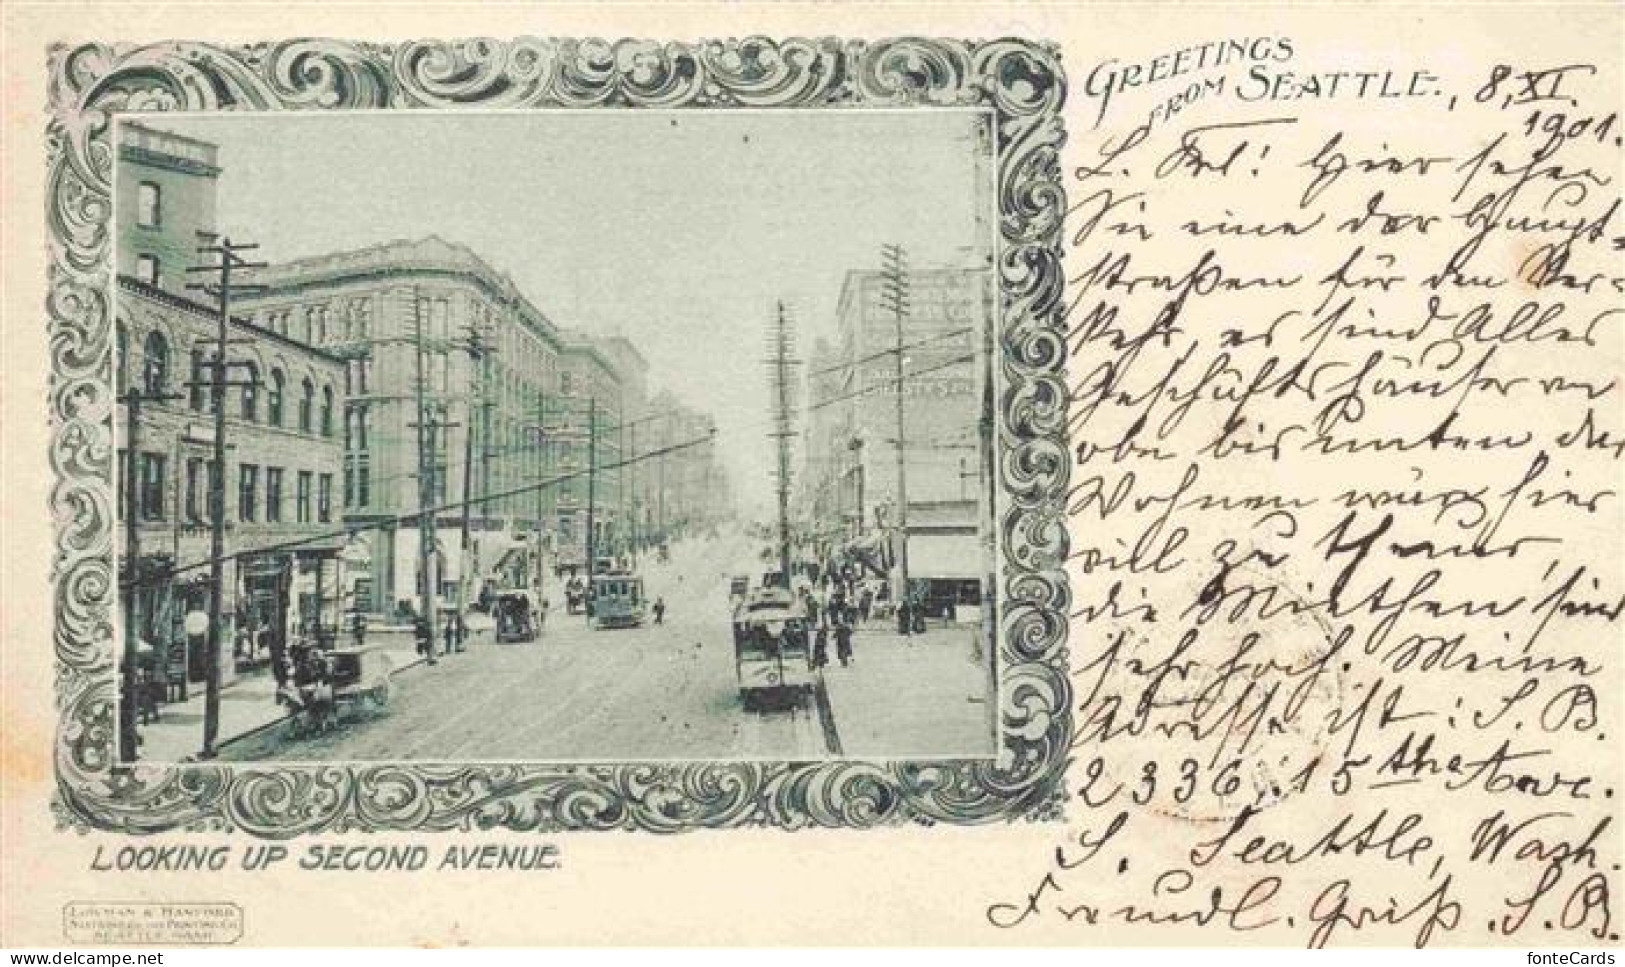 GREETINGS
FROM SEATTLE., 8, XI.
1901.
L. Frl! Hier sehen
Sie eine der Haupt-
straßen für den Ver-
kehr, es sind Alles
Geschäftshäuser von
oben bis unten das
Wohnen wäre hier
viel zu theuer,
die Miethen sind
sehr hoch. Meine
Adresse ist: S. B.
2336, 15the Ave.
S. Seattle, Wash.
Freundl. Gruß. S. B.
LOOKING UP SECOND AVENUE.
LOWMAN & HANFORD
STATIONERY AND PRINTING CO.
SEATTLE WASH.
www.delcampe.net
fonteCards